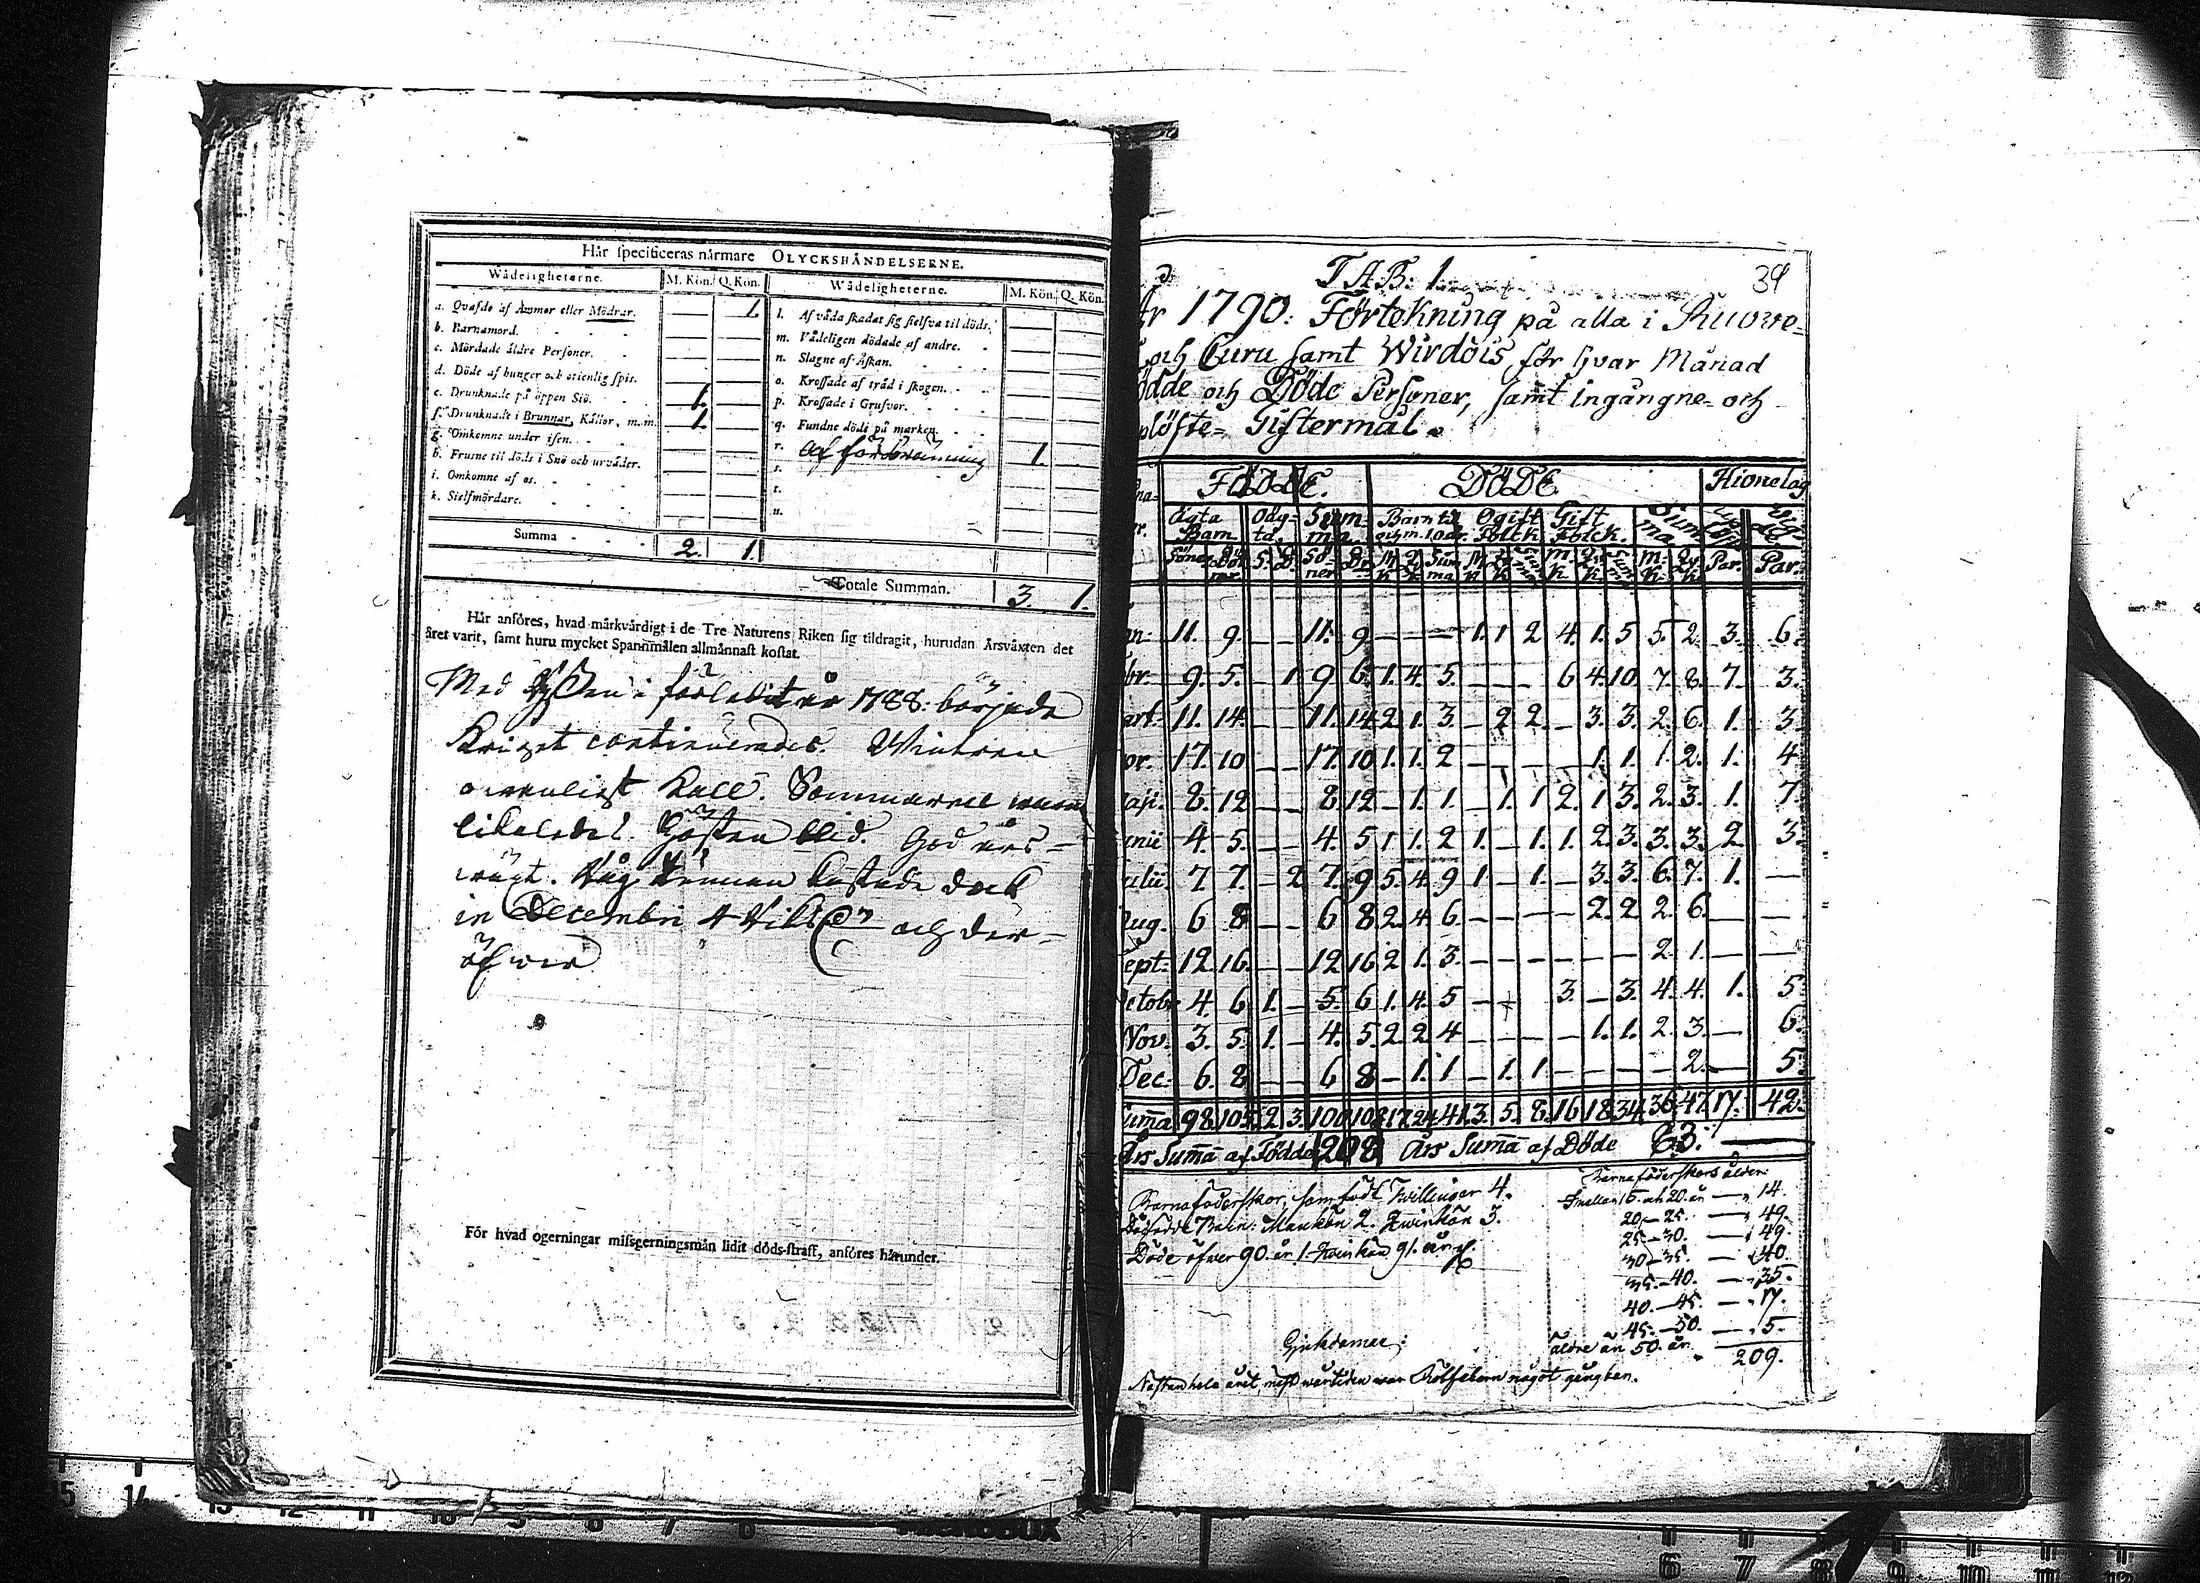 Här specificeras närmare OLYCKSHÄNDELSERNE.
Wådeligheterne. M. Kön. Q. Kön. Wådeligheterne. M. Kön. Q. Kön.
a. Qvafde af Ammor eller Mödrar. 1. l. Af våda skadat sig sielfva til döds.
b. Barnamord. m. Vådeligen dödade af andre.
c. Mördade äldre Personer. n. Slagne af Åskan.
d. Döde af hunger och otienlig spis. o. Krossade af träd i skogen.
e. Drunknade på öppen Siö. 1. p. Krossade i Grufvor.
f. Drunknade i Brunnar, Källor, m.m. 1. q. Fundne döde på marken.
g. Omkomne under isen. r. af förbränning 1.
h. Frusne til döds i Snö och urväder. s.
i. Omkomne af os. t.
k. Sielfmördare. u.
Summa 2. 1.
Totale Summan. 3. 1.
Här anföres, hvad märkvärdigt i de Tre Naturens Riken sig tildragit, hurudan Årsväxten det
året varit, samt huru mycket Spannmålen allmännast kostat.
Med i förledit år 1788. började
Kriget continuerades. Wintren
ovanligt kall. Sommaren
likaledes. Hösten blid. God års-
wäxt. Kostade dock
in Decembri 4 och der-
öfwer
För hvad ogerningar missgerningsmän lidit döds-straff, anföres härunder.
39
TAB: 1.
År 1790: Förtekning på alla i Ruowe-
och Curu samt Wirdois för hvar Månad
födde och Döde Personer, samt ingångne- och
uplöste- Giftermål.
FÖDDE. DÖDE. Hionelag
Ägta Barn Oäg-ta. Sum-ma. Barn til och m. 10 år. Ogift Folck Gift Folck. Sum-ma.
Söner Döt-trar. S. D. Sö-ner Dr. M k Q k Sum ma M k Q k Sum ma M. k. Q. k. Sum ma M. k. Q. k. Par. Par.
an- 11. 9. — — 11. 9 — — — 1. 1 2 4. 1. 5 5. 2. 3. 6.
br- 9. 5. — 1 9 6. 1. 4. 5. — — — 6 4. 10. 7. 8. 7. 3.
art- 11. 14. — — 11. 14. 2 1. 3. — 2 2. — 3. 3. 2. 6. 1. 3.
pr. 17. 10 — — 17. 10 1. 1. 2 — — — — 1. 1. 1. 2. 1. 4
aji. 8. 12 — — 8. 12 — 1. 1. — 1. 1 2. 1 3. 2. 3. 1. 7.
unii 4. 5. — — 4. 5 1 1. 2 1. — 1. 1. 2. 3. 3. 3. 2 3.
ulii 7 7. — 2 7. 9 5. 4. 9 1. — 1. — 3. 3. 6. 7. 1. —
Aug. 6 8 — — 6 8 2. 4. 6. — — — — 2. 2. 2. 6. — —
Sept- 12. 16. — — 12. 16. 2. 1. 3. — — — — — — 2. 1. — —
Octob. 4. 6 1. — 5. 6 1. 4. 5 — — 3. — 3. 4. 4. 1. 5
Nov. 3. 5. 1. — 4. 5. 2 2 4 — — — — 1. 1. 2. 3. — 6.
Dec- 6. 8 — — 6 8 — 1. 1 — 1. 1 — — — — 2. — 5.
Summa 98. 105. 2 3. 100 108 17. 24. 41. 3. 5. 8. 16. 18. 34. 36. 47. 17. 42.
Års Summa af Födde 208 Års Summa af Döde 83.
Barnaföderskor, som födt Twillingar 4.
Dödfödde Barn: Mankön 2. Qwinkön 3.
Döde öfwer 90. år 1. Qwinkön 91. år
Barnaföderskors ålder
Emellan 15. och 20. år — 14.
20 — 25. — 49.
25 — 30. — 49.
30 — 35. — 40.
35. — 40. — 35.
40. — 45. — 17.
45. — 50. — 5.
äldre än 50. år.
209.
Siukdomar:
Nästan hela året mäst wårtiden war Rötfebern något gängbar.